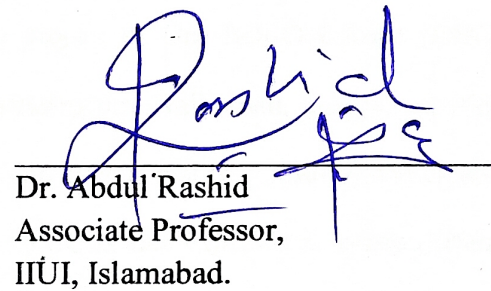 Rashid
Dr. Abdul Rashid
Associate Professor,
IIUI, Islamabad.